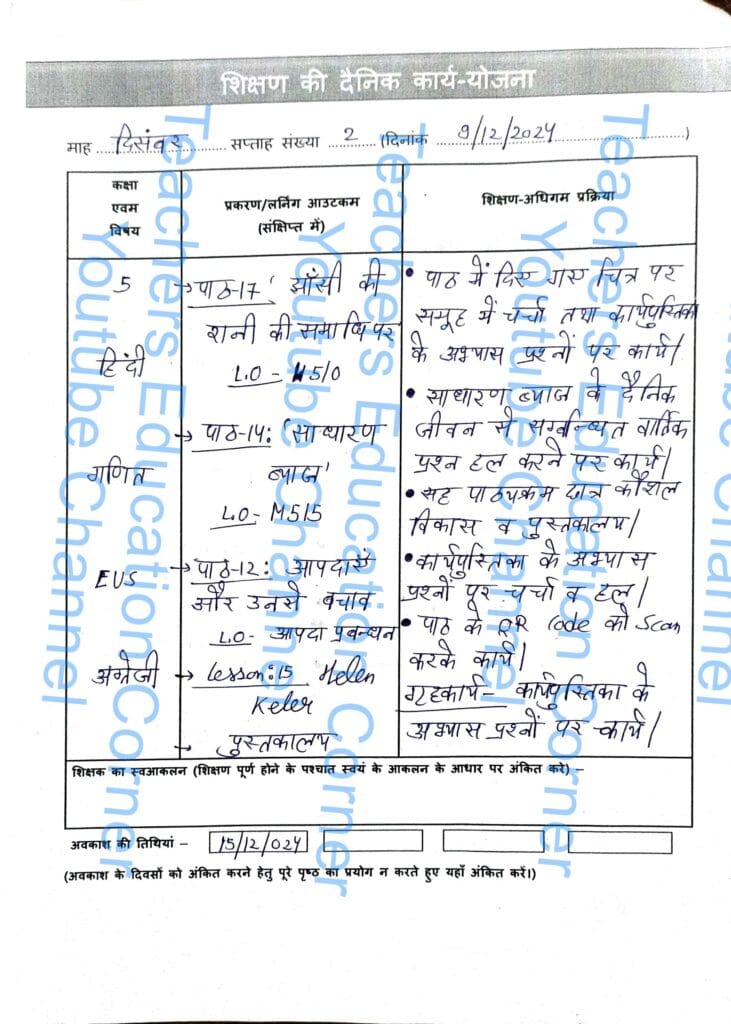 शिक्षण की दैनिक कार्य-योजना
माह दिसंबर सप्ताह संख्या 2 (दिनांक 9/12/2024)
कक्षा
एवम
विषय
प्रकरण/लर्निंग आउटकम
(संक्षिप्त में)
शिक्षण-अधिगम प्रक्रिया
5
हिंदी
→ पाठ-17 ' झाँसी की
रानी की समाधि पर
L.O - H510
• पाठ में दिए गए चित्र पर
समूह में चर्चा तथा कार्यपुस्तिका
के अभ्यास प्रश्नों पर कार्य।
गणित
→ पाठ-14: 'साधारण
ब्याज'
L.O - M515
• साधारण ब्याज के दैनिक
जीवन से सम्बन्धित वार्तिक
प्रश्न हल करने पर कार्य।
• सह पाठ्यक्रम छात्र कौशल
विकास व पुस्तकालय।
EUS
→ पाठ-12: आपदाएँ
और उनसे बचाव
L.O- आपदा प्रबन्धन
• कार्यपुस्तिका के अभ्यास
प्रश्नों पर चर्चा व हल।
• पाठ के QR code को Scan
करके कार्य।
अंग्रेजी
→ Lesson:15 Helen
Keler
→ पुस्तकालय
गृहकार्य - कार्यपुस्तिका के
अभ्यास प्रश्नों पर कार्य।
शिक्षक का स्वआकलन (शिक्षण पूर्ण होने के पश्चात स्वयं के आकलन के आधार पर अंकित करे) –
अवकाश की तिथियां – 15/12/024
(अवकाश के दिवसों को अंकित करने हेतु पूरे पृष्ठ का प्रयोग न करते हुए यहाँ अंकित करें।)
Teachers Education Corner
Youtube Channel
Teachers Education Corner
Youtube Channel
Teachers Education Corner
Youtube Channel